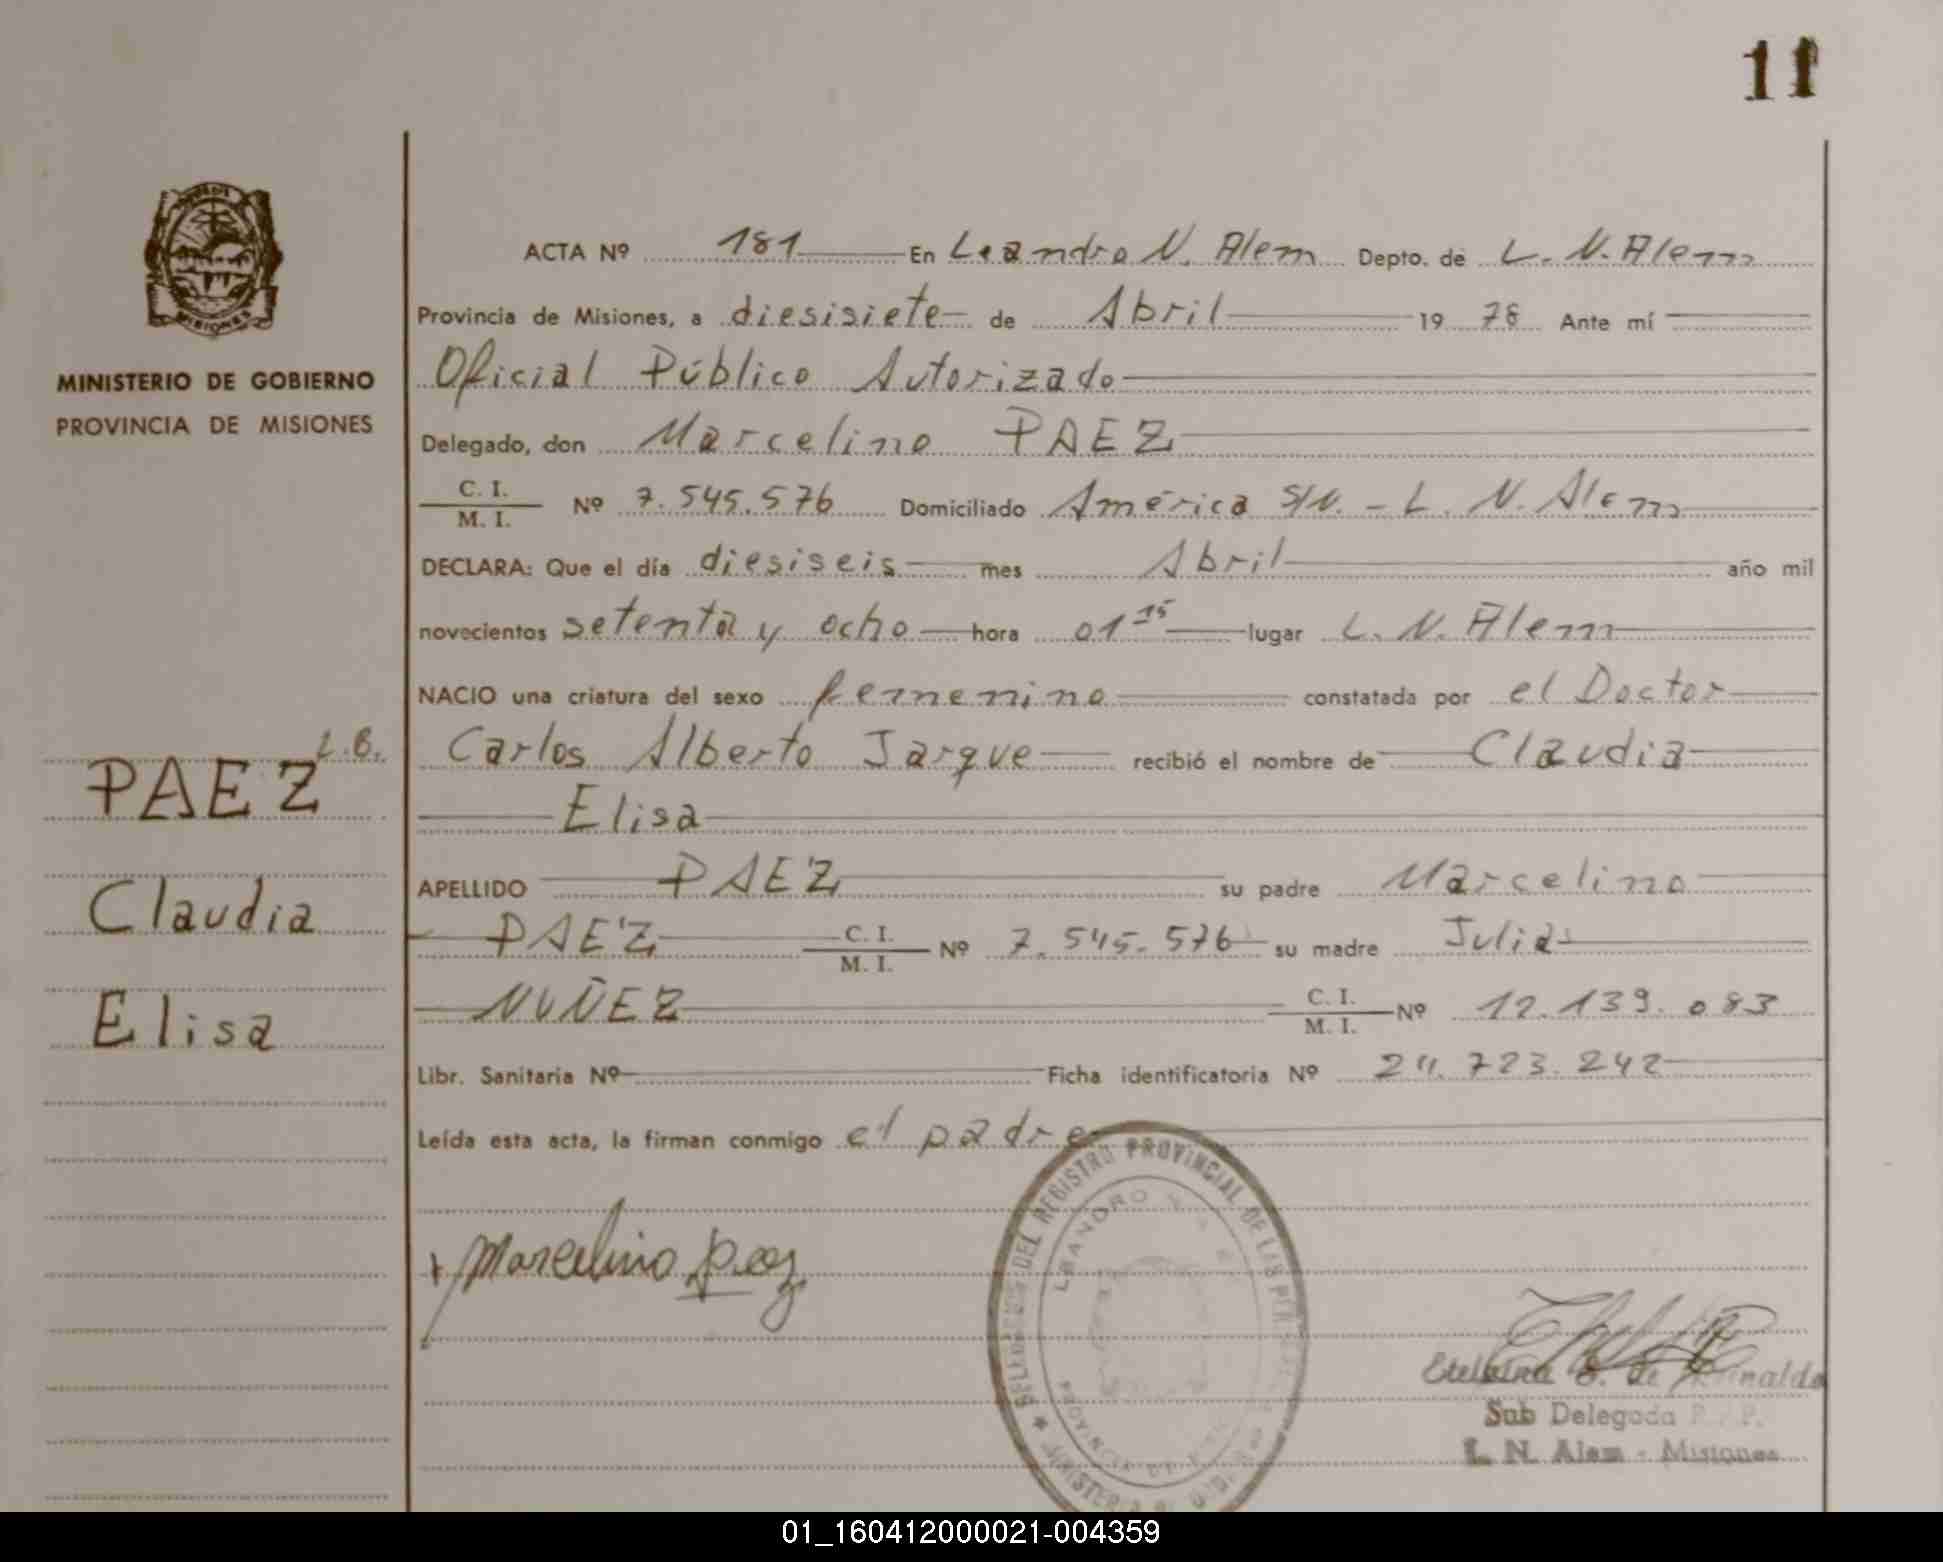 11
MISIONES
MINISTERIO DE GOBIERNO
PROVINCIA DE MISIONES
L.B.
PAEZ
Claudia
Elisa
ACTA Nº 181 En Leandro N. Alem Depto. de L. N. Alem
Provincia de Misiones, a diesisiete de Abril 19 78 Ante mí
Oficial Público Autorizado
Delegado, don Marcelino PAEZ
C. I. / M. I. Nº 7.545.576 Domiciliado América S/N. - L. N. Alem
DECLARA: Que el día diesiseis mes Abril año mil
novecientos setenta y ocho hora 01 15 lugar L. N. Alem
NACIO una criatura del sexo femenino constatada por el Doctor
Carlos Alberto Jarque recibió el nombre de Claudia
Elisa
APELLIDO PAEZ su padre Marcelino
PAEZ C. I. / M. I. Nº 7.545.576 su madre Julia
NUÑEZ C. I. / M. I. Nº 12.139.083
Libr. Sanitaria Nº Ficha identificatoria Nº 2 .723.242
Leída esta acta, la firman conmigo el padre
Marcelino Paez
DEL REGISTRO PROVINCIAL DE LAS
LEANDRO N.
PROVINCIA DE
MINISTERIO
Sub Delegada
L. N. Alem - Misiones
01_160412000021-004359